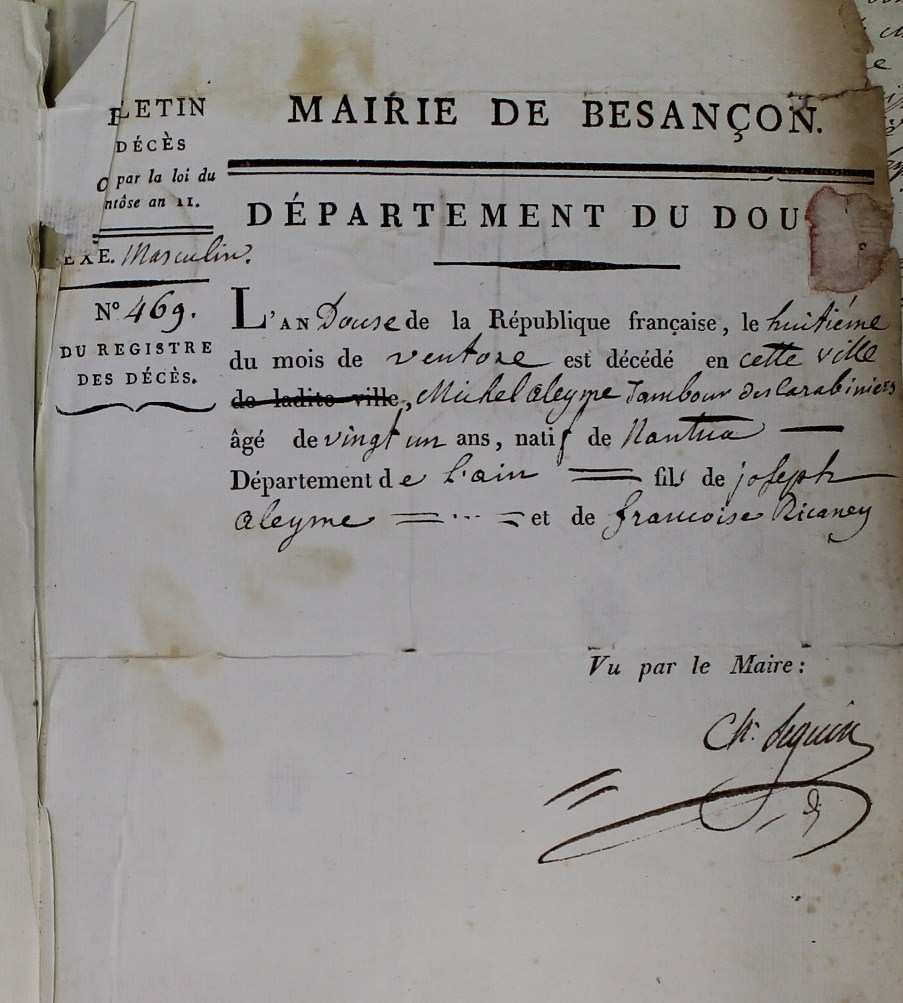 LETIN
DÉCÈS
par la loi du
ntôse an 11.
EXE. Masculin.
N° 469.
DU REGISTRE
DES DÉCÈS.
MAIRIE DE BESANÇON.
DÉPARTEMENT DU DOU
L'AN Douse de la République française, le huitiéme
du mois de ventose est décédé en cette ville
de ladite ville, Michel aleyme Tambour des Carabiniers
âgé de vingt un ans, natif de Nantua
Département de L'ain fils de joseph
aleyme et de francoise Ricaney
Vu par le Maire :
Ch. Seguin